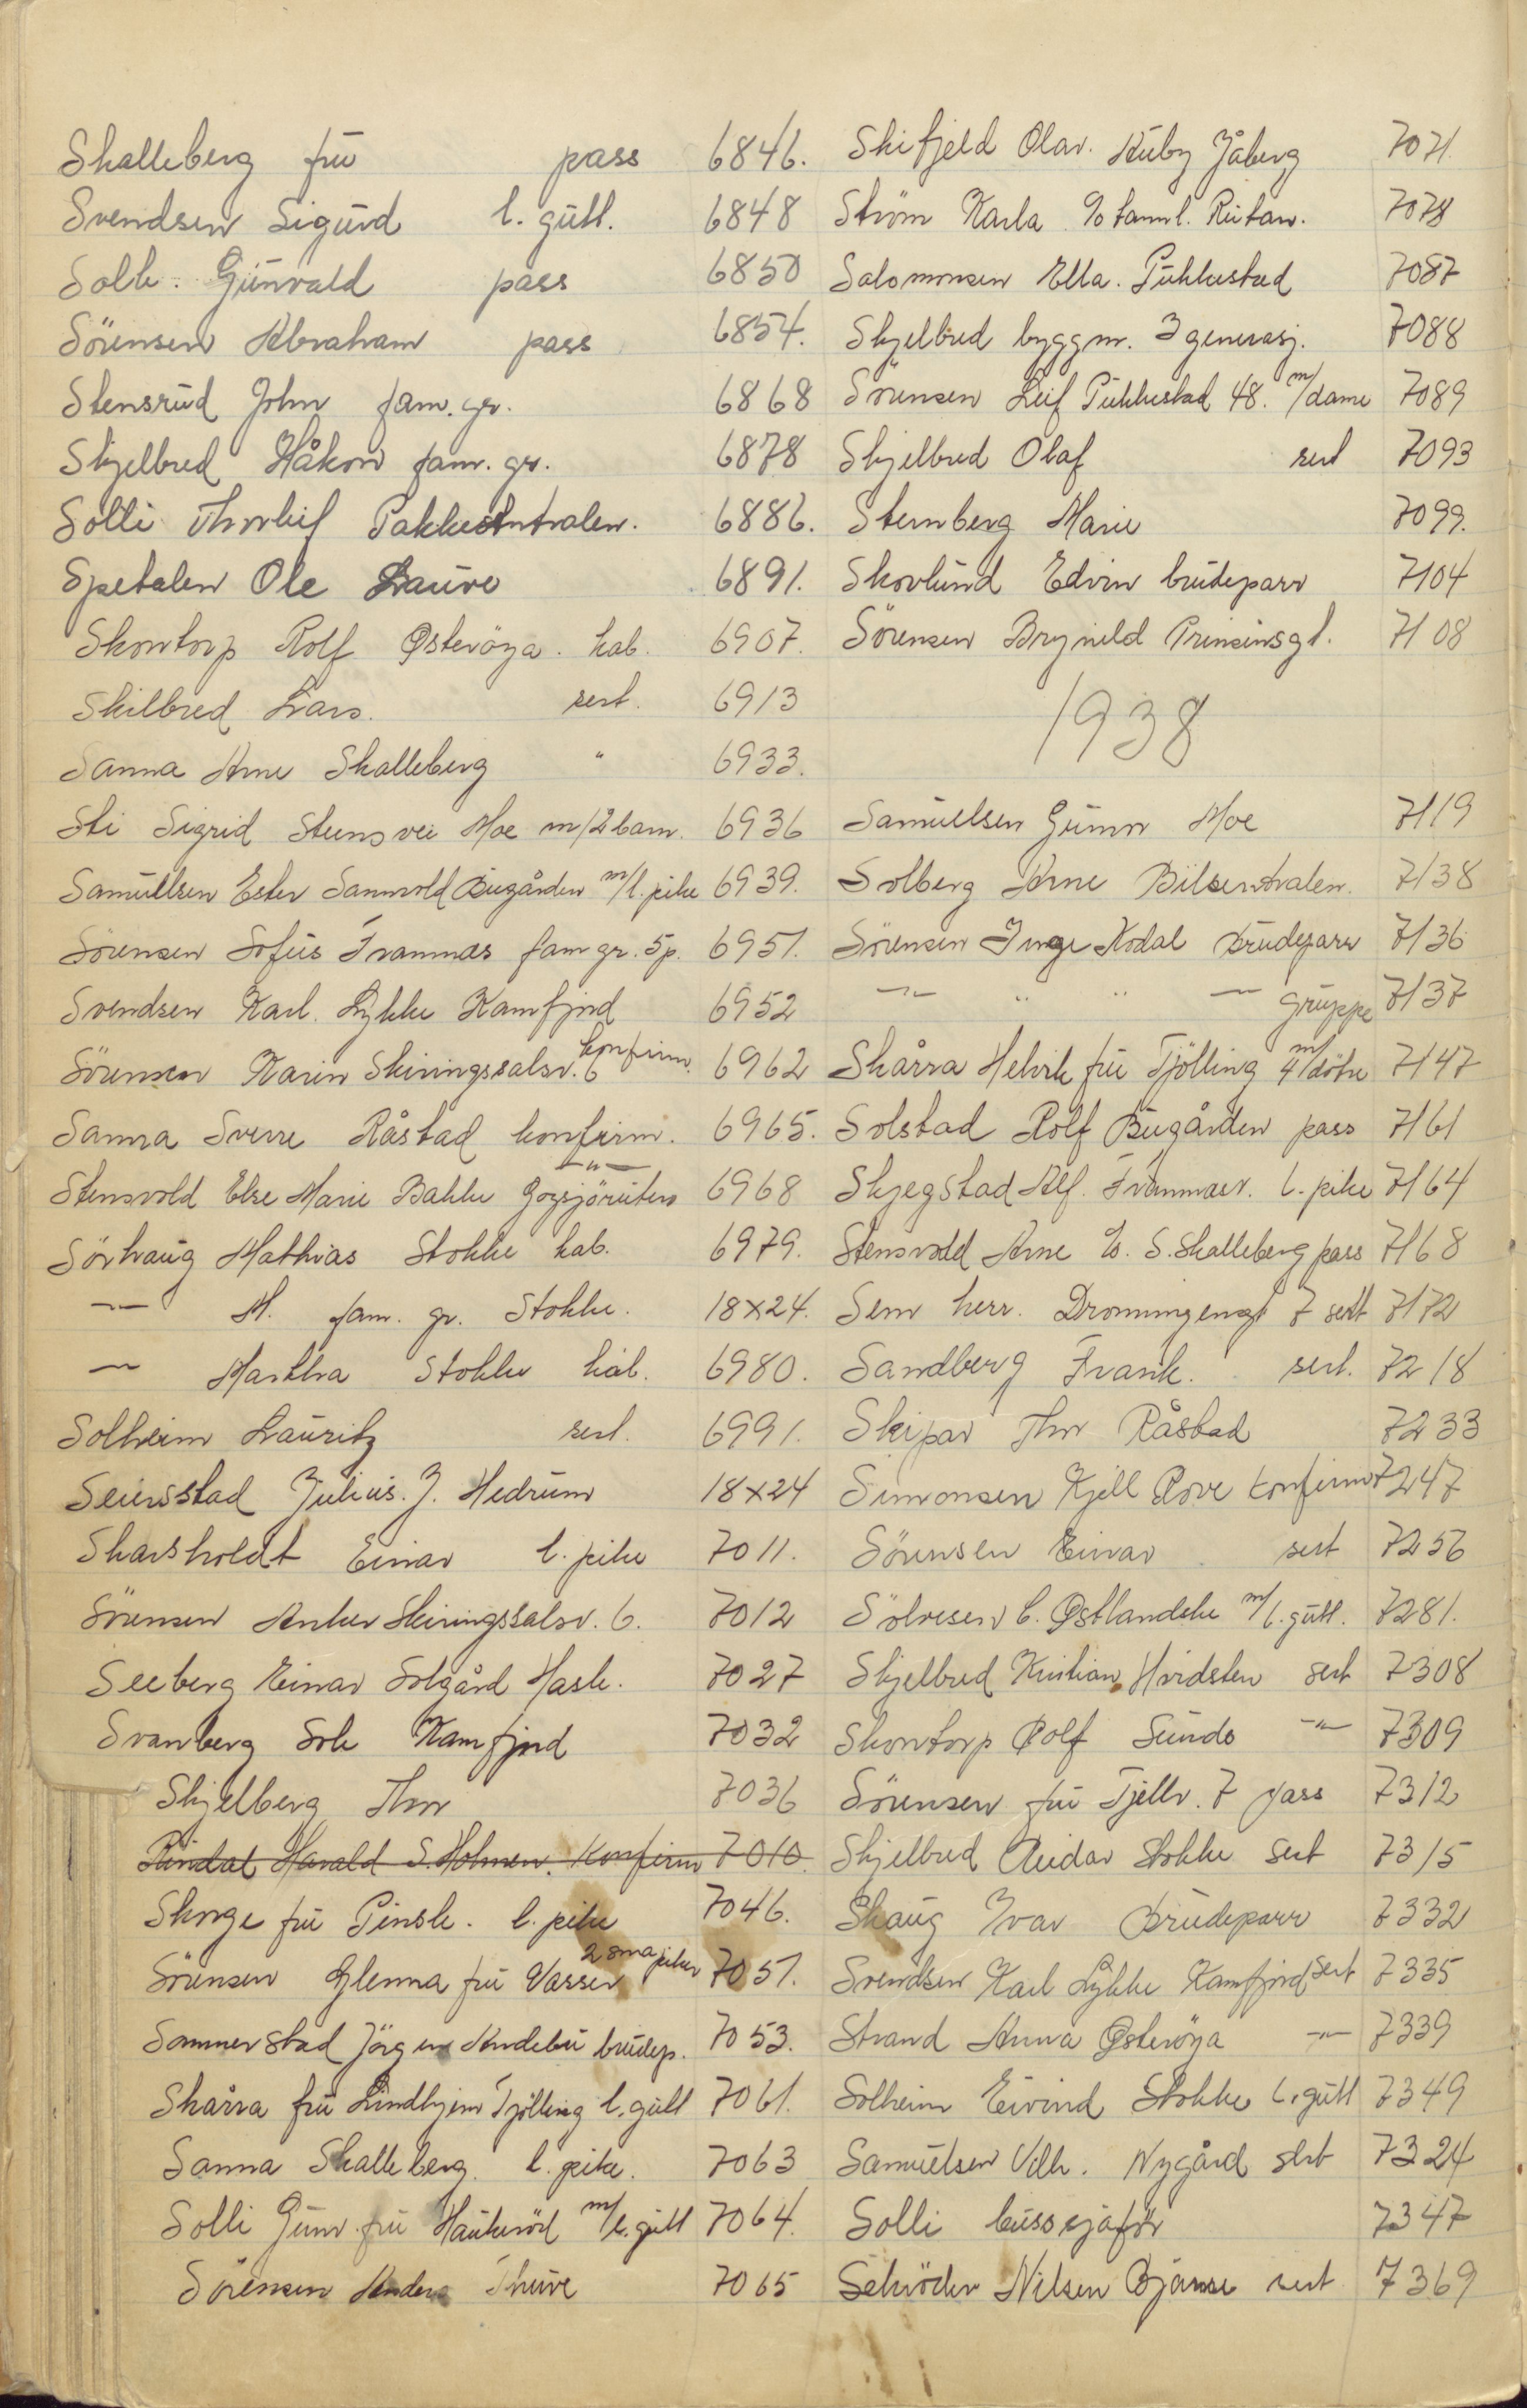 Skalleberg frü pass 6846.
Svendsen Sigürd l. gütt. 6848
Solli. Günvald pass 6850
Sörensen Abraham pass 6854.
Stensrüd John fam. gr. 6868
Skjelbred Håkon fam. gr. 6878
Solli Thorleif Pakkecentralen. 6886.
Spetalen Ole Lauve 6891.
Skontorp Rolf Østeröya. kab. 6907.
Skilbred Lars. sert. 6913
Sanna Arne Skalleberg " 6933.
Sti Sigrid Steensvei Moe m/2 barn. 6936
Samüelsen Ester Sannvold Bügården m/l. pike 6939.
Sörensen Sofüs Framnæs fam gr. 5p. 6951.
Svendsen Karl. Lykke Kamfjord 6952
Sörensen Karin Skiringssalsv. 6 konfirm. 6962
Sanna Sverre Råstad konfirm. 6965.
Stensvold Else Marie Bakke Gogsjörüten -"- 6968
Sörhaüg Mathias Stokke kab. 6979.
-"- M. fam. gr. Stokke. 18x24.
-"- Martha Stokke kab. 6980.
Solheim Laüritz sert. 6991.
Seiersstad Julius. J. Hedrüm 18x24
Skarsholdt Einar l. pike 7011.
Sörensen Anker Skiringssalsv. 6. 7012
Seeberg Einar Solgård Hasle. 7027
Svanberg Sole Kamfjord 7032
Skjelberg Thor 7036
Rindal Harald S. Holmen. Konfirm 7010.
Skorge frü Pinsle. l. pike 7046.
Sörensen Glenna frü Vasser 2 sma piker 7051.
Sommerstad Jörgen Andebü brüdep. 7053.
Skårra frü Lindhjem Tjölling l. gütt 7061.
Sanna Skalleberg. l. pike. 7063
Solli Günv. frü Haükeröd m/l. gütt 7064.
Sörensen Anders Thüve 7065
Skifjeld Olav. Küby Jåberg 7071.
Ström Karla c/o tannl. Rüstan. 7078
Salomonsen Ella. Pükkestad 7087
Skjelbred byggm. 3 generasj. 7088
Sörensen Leif Pükkestad 48. m/dame 7089
Skjelbred Olaf sert 7093
Sternberg Marie 7099.
Skovlünd Edvin brüdeparr 7104
Sörensen Brynild Prinsensgt. 7108
1938
Samüelsen Günnr Moe 7119
Solberg Arne Bilsentralen. 7138
Sörensen Inge Kodal brüdeparr 7136
-"- " " -"- grüppe 7137
Skårra Helvik frü Tjölling m/4 dötre 7147
Solstad Rolf Bügården pass 7161
Skjegstad Alf. Framnæsv. l. pike 7164
Stensvold Arne c/o. S. Skalleberg pass 7168
Sem herr. Dronningensgt 7 sert 7172
Sandberg Frank. sert. 7218
Skipar Thor Råstad 7233
Simonsen Kjell Rove konfirm 7247
Sörensen Einar sert 7256
Sölvesen C. Østlandske m/l. gütt. 7281.
Skjelbred Kristian Hvidsten sert 7308
Skontorp Rolf Sünde -"- 7309
Sörensen frü Tjellv. 7 pass 7312
Skjelbred Reidar Stokke sert 7315
Skaüg Ivar Brüdeparr 7332
Svendsen Karl Lykke Kamfjord sert 7335
Strand Anna Østeröya -"- 7339
Solheim Eivind Stokke l. gütt 7349
Samüelsen Vilh. Nygård sert 7324
Solli büssjaför 7347
Schröder Nilsen Bjarne sert 7369